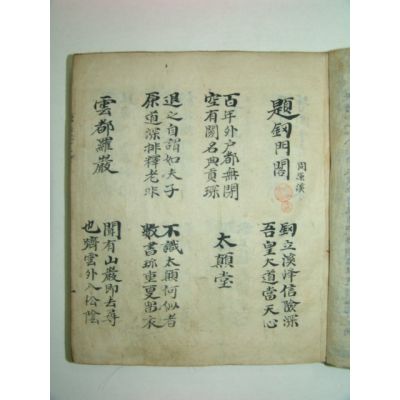 題釖門閣
周濂溪
釖立溪峰信險深
吾皇大道當天心
百年外戶都無閉
空有關名典貢琛
太顛堂
退之自謂如夫子
原道深排釋老非
不識太顛何似者
數書珎重更留衣
雲都羅巖
聞有山巖即去尋
也躋雲外入松陰